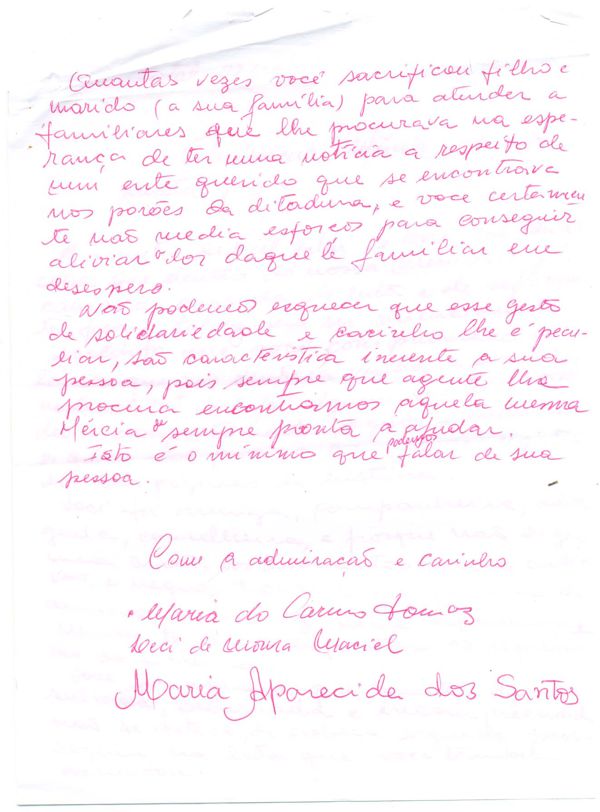 Quantas vezes você sacrificou filho e
marido (a sua família) para atender a
familiares que lhe procurava na espe-
rança de ter uma notícia a respeito de
um ente querido que se encontrava
nos porões da ditadura, e você certamen
te não media esforços para conseguir
aliviar a dor daquele familiar em
desespero.
Não podemos esquecer que esse gesto
de solidariedade e carinho lhe é pecu-
liar, são característica inerente a sua
pessoa, pois sempre que agente lhe
procura encontramos aquela mesma
Mércia de sempre pronta a ajudar.
Isto é o mínimo que podemos falar de sua
pessoa.
Com a admiração e carinho
Maria do Carmo Tomaz
de Moura Maciel
Maria Aparecida dos Santos